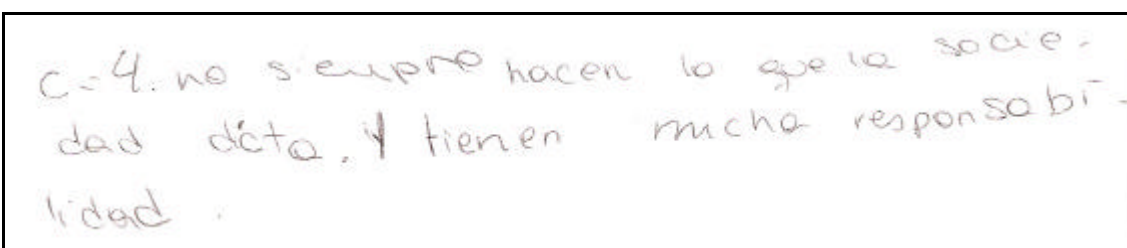 C-4. no siempre hacen lo que la socie-
dad dicta. Y tienen mucha responsabi-
lidad.